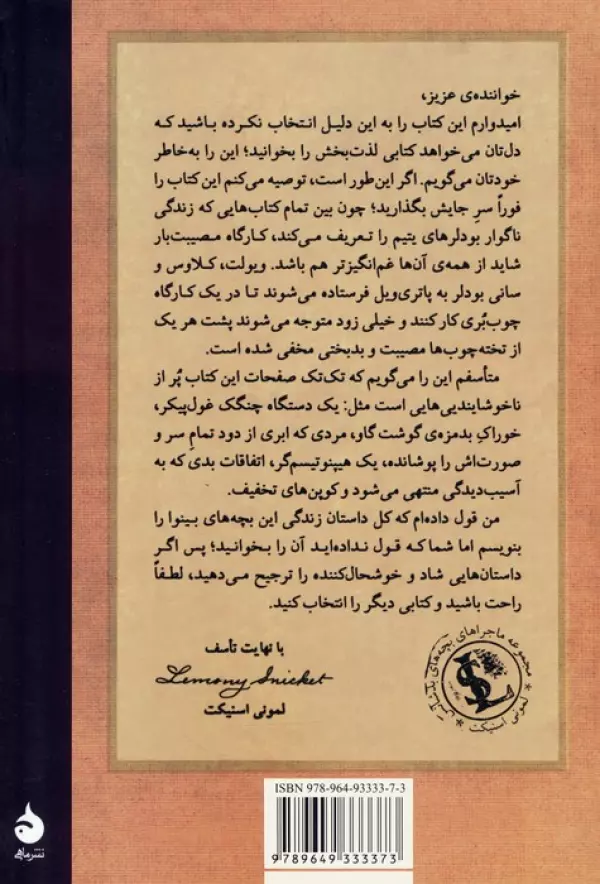 خواننده‌ی عزیز،
امیدوارم این کتاب را به این دلیل انتخاب نکرده باشید که
دل‌تان می‌خواهد کتابی لذت‌بخش را بخوانید؛ این را به‌خاطر
خودتان می‌گویم. اگر این‌طور است، توصیه می‌کنم این کتاب را
فوراً سرِ جایش بگذارید؛ چون بین تمام کتاب‌هایی که زندگی
ناگوار بودلرهای یتیم را تعریف می‌کند، کارگاه مصیبت‌بار
شاید از همه‌ی آن‌ها غم‌انگیزتر هم باشد. ویولت، کلاوس و
سانی بودلر به پاتری‌ویل فرستاده می‌شوند تا در یک کارگاه
چوب‌بُری کار کنند و خیلی زود متوجه می‌شوند پشت هر یک
از تخته‌چوب‌ها مصیبت و بدبختی مخفی شده است.
متأسفم این را می‌گویم که تک‌تک صفحات این کتاب پُر از
ناخوشایندیی‌هایی است مثل: یک دستگاه چنگک غول‌پیکر،
خوراکِ بدمزه‌ی گوشت گاو، مردی که ابری از دود تمامِ سر و
صورت‌اش را پوشانده، یک هیپنوتیسم‌گر، اتفاقات بدی که به
آسیب‌دیدگی منتهی می‌شود و کوپن‌های تخفیف.
من قول داده‌ام که کل داستان زندگی این بچه‌های بینوا را
بنویسم اما شما که قول نداده‌اید آن را بخوانید؛ پس اگر
داستان‌هایی شاد و خوشحال‌کننده را ترجیح می‌دهید، لطفاً
راحت باشید و کتابی دیگر را انتخاب کنید.
با نهایت تأسف
Lemony Snicket
لمونی اسنیکت
مجموعه ماجراهای بچه‌های بدشانس
لمونی اسنیکت
ISBN 978-964-93333-7-3
9 789649 333373
نشر ماهی